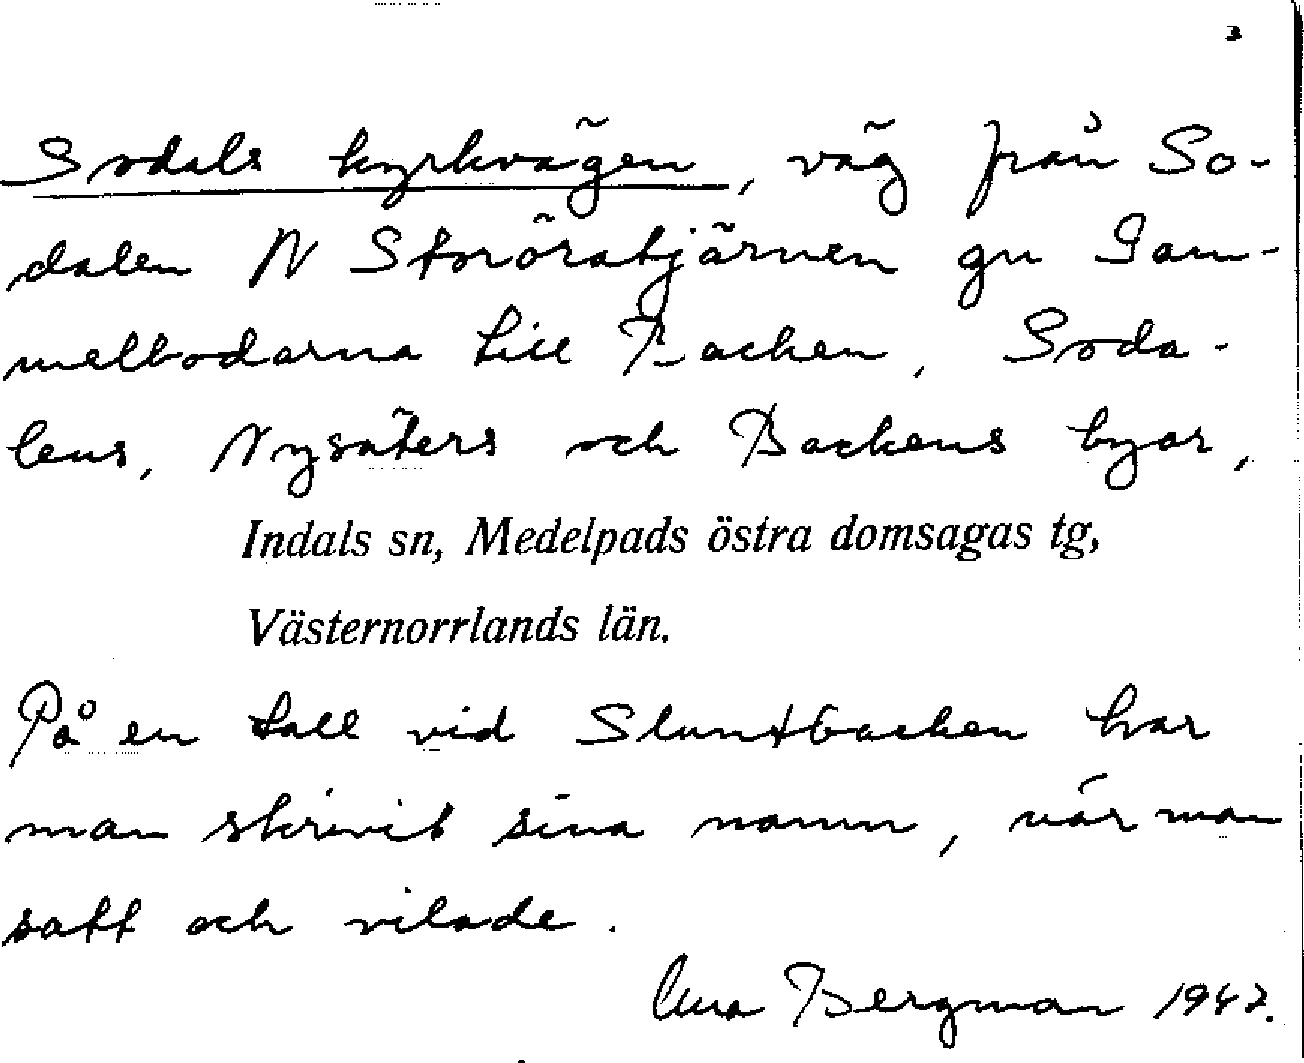 3
Sodals kyrkvägen, väg från So-
dalen N Storöratjärnen gn Gam-
melbodarna till Backen, Soda-
lens, Nysäters och Backens byar,
Indals sn, Medelpads östra domsagas tg,
Västernorrlands län.
På en tall vid Sluntbacken har
man skrivit sina namn, när man
satt och vilade.
Bergman